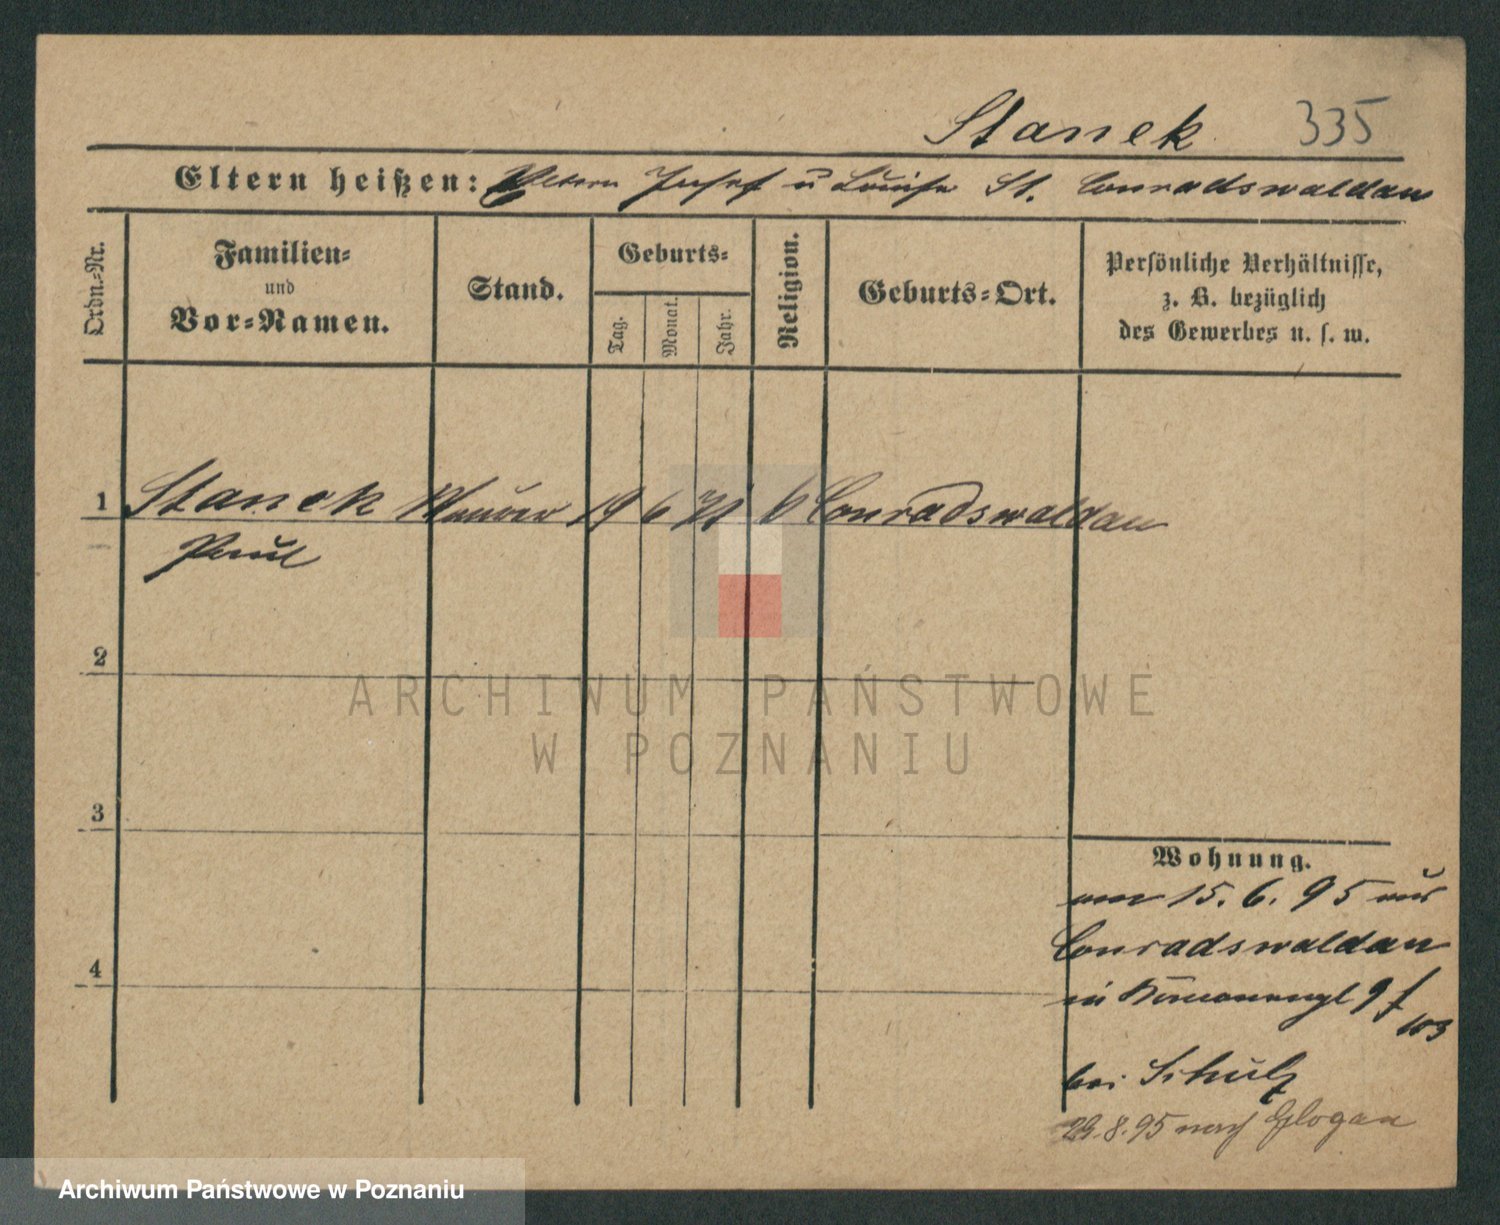 Stanek 335
Eltern heißen: Eltern Josef u Louise St. Conradswaldau
Ordn.-Nr.
Familien-
und
Vor-Namen.
Stand.
Geburts-
Tag.
Monat.
Jahr.
Religion.
Geburts-Ort.
Persönliche Verhältnisse,
z. B. bezüglich
des Gewerbes u. s. w.
1 Stanek Maurer 19 6 71 Conradswaldau
Paul
2
ARCHIWUM PAŃSTWOWE
W POZNANIU
3
Wohnung.
am 15. 6. 95 aus
Conradswaldau
4
in 9 f
103
bei Schulz
29.8.95 nach Glogau
Archiwum Państwowe w Poznaniu